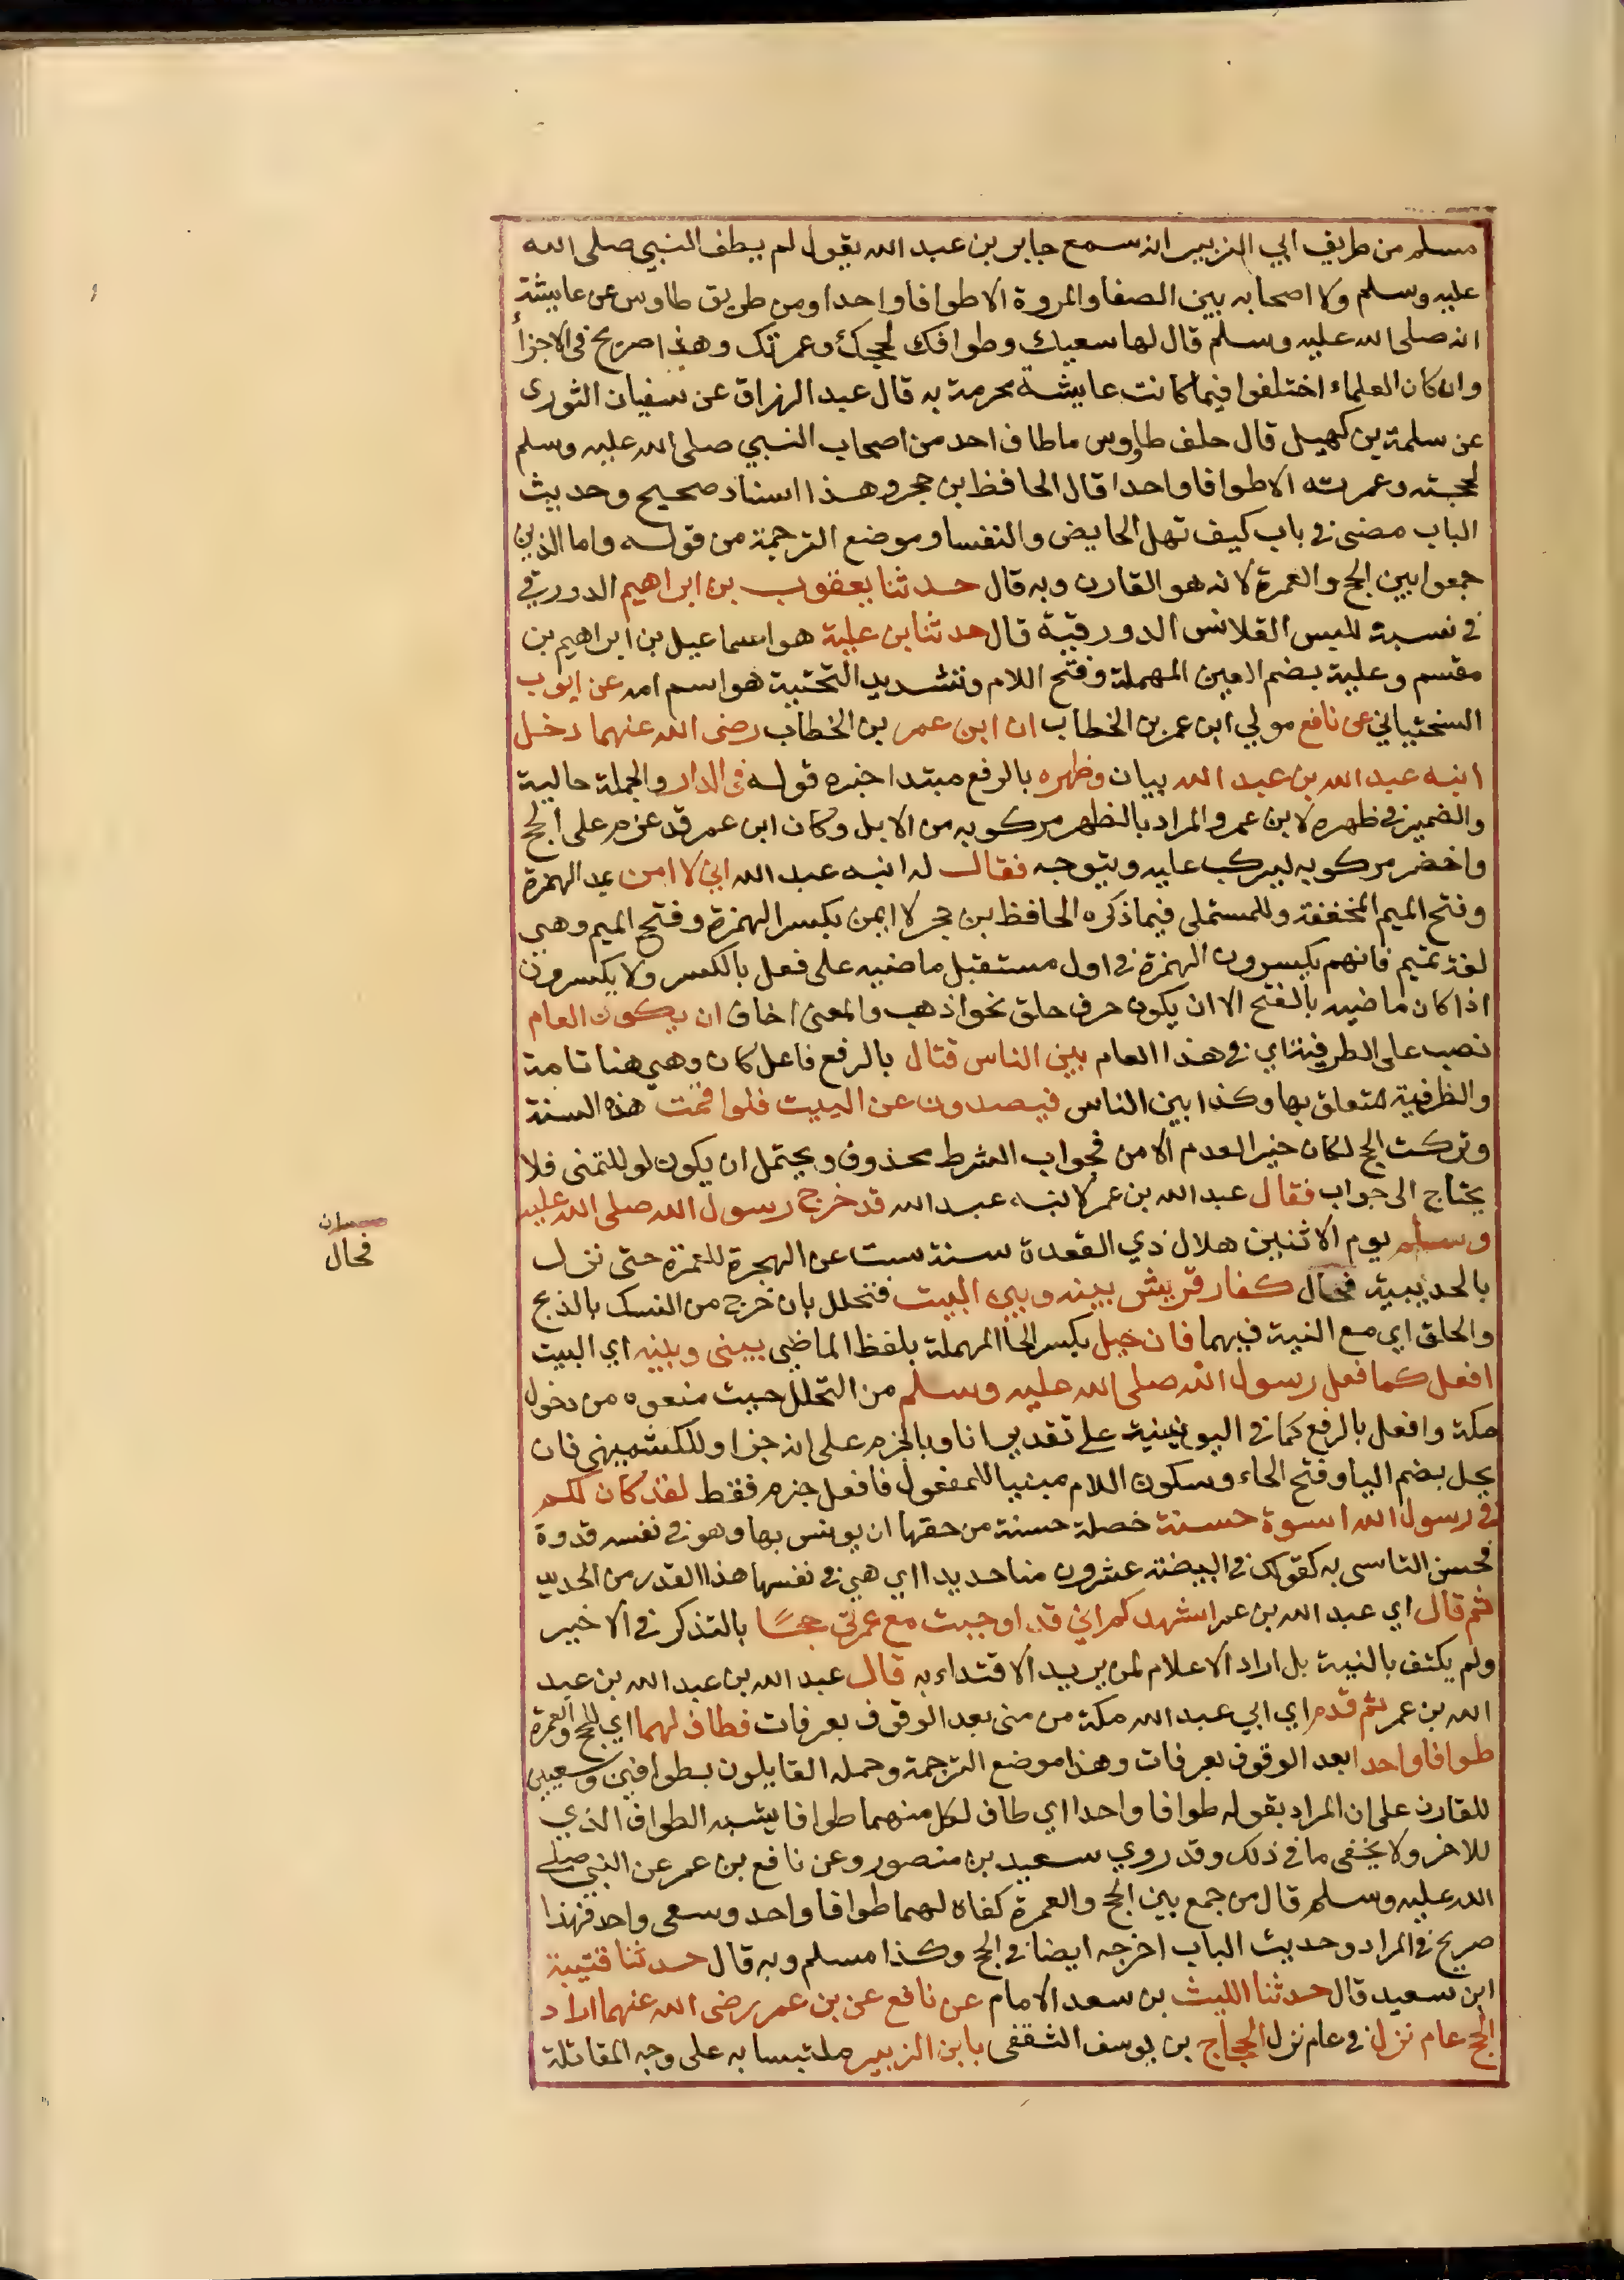 مسلم من طريق ابي الزبير انه سمع جابر بن عبد الله يقول لم يطف النبي صلى الله
عليه وسلم ولا اصحابه بين الصفا والمروة الا طوافا واحدا ومن طريق طاوس عن عايشة
انه صلى الله عليه وسلم قال لها سعيك وطوافك لحجك وعمرتك وهذا صريح في الاجزأ
وان كان العلماء اختلفوا فيما كانت عايشة محرمة به قال عبد الرزاق عن سفيان الثورى
عن سلمة بن كهيل قال حلف طاووس ما طاف احد من اصحاب النبي صلى الله عليه وسلم
لحجته وعمرته الا طوافا واحدا قال الحافظ بن حجر وهذا اسناد صحيح وحديث
الباب مضى في باب كيف تهل الحايض والنفسا وموضع الترجمة من قوله واما الذين
جمعوا بين الحج والعمرة لانه هو القارن وبه قال حدثنا يعقوب بن ابراهيم الدورقي
في نسبة للبس القلانس الدورقية قال حدثنا بن علية هو اسماعيل بن ابراهيم بن
مقسم وعلية بضم العين المهملة وفتح اللام وتشديد التحتية هو اسم امه عن ايوب
السختياني عن نافع مولي ابن عمر بن الخطاب ان ابن عمر بن الخطاب رضى الله عنهما دخل
ابنه عبد الله بن عبد الله بيان وظهره بالرفع مبتدا خبره قوله في الدار والجملة حالية
والضمير في ظهره لابن عمر والمراد بالظهر مركوبه من الابل وكان ابن عمر قد عزم على الحج
واخضر مركوبه ليركب عليه ويتوجه فقال له ابنه عبد الله اني لا امن بمد الهمزة
وفتح الميم المخففة وللمستملي فيما ذكره الحافظ بن حجر لا ايمن بكسر الهمزة وفتح الميم وهي
لغة تميم فانهم يكسرون الهمزة في اول مستقبل ماضيه على فعل بالكسر ولا يكسرون
اذا كان ماضيه بالفتح الا ان يكون حرف حلق نحو اذهب والمعنى اخاف ان يكون العام
نصب على الظرفية اي في هذا العام بين الناس قتال بالرفع فاعل كان وهي هنا تامة
والظرفية متعلق بها وكذا بين الناس فيصدون عن البيت فلو اقمت هذه السنة
وتركت الحج لكان خير العدم الامن فجواب الشرط محذوف ويحتمل ان يكون لو للتمنى فلا
يحتاج الى جواب فقال عبد الله بن عمر لابنه عبد الله قد خرج رسول الله صلى الله عليه
وسلم يوم الاثنين هلال ذي القعدة سنة ست عن الهجرة للعمرة حتى نزل
بالحديبية فحال كفار قريش بينه وبين البيت فتحلل بان خرج من النسك بالذبح
والحلق اي مع النية فيهما فان حيل بكسر الحا المهملة بلفظ الماضي بيني وبينه اي البيت
افعل كما فعل رسول الله صلى الله عليه وسلم من التحلل حيث منعوه من دخول
مكة وافعل بالرفع كما في اليونينية على تقدير انا وبالجزم على انه جزا وللكشميهني فان
يحل بضم اليا وفتح الحاء وسكون اللام مبنيا للمفعول فافعل جزم فقط لقد كان لكم
في رسول الله اسوة حسنة خصلة حسنة من حقها ان يونس بها وهو في نفسه قدوة
فحسن التاسى به كقولك في البيضة عشرون منا حديدا اي هي في نفسها هذا القدر من الحديد
ثم قال اي عبد الله بن عمر اشهدكم اني قد اوجبت مع عمرتي حجًا بالتذكر في الاخير
ولم يكتف بالنية بل اراد الاعلام لمن يريد الاقتداء به قال عبد الله بن عبد الله بن عبد
الله بن عمر ثم قدم اي ابي عبد الله مكة من منى بعد الوقوف بعرفات فطاف لهما اي للحج والعمرة
طوافا واحدا بعد الوقوف بعرفات وهذا موضع الترجمة وحمله القايلون بطوافين وسعيين
للقارن على ان المراد بقوله طوافا واحدا اي طاف لكل منهما طوافا يشبه الطواف الذي
للاخر ولا يخفى ما في ذلك وقد روي سعيد بن منصور وعن نافع بن عمر عن النبي صلى
الله عليه وسلم قال من جمع بين الحج والعمرة كفاه لهما طوافا واحد وسعى واحد فهذا
صريح في المراد وحديث الباب اخرجه ايضا في الحج وكذا مسلم وبه قال حدثنا قتيبة
ابن سعيد قال حدثنا الليث بن سعد الامام عن نافع عن بن عمر رضى الله عنهما اراد
الحج عام نزل في عام نزل الحجاج بن يوسف الثقفى بابن الزبير ملتبسا به على وجه المقاتلة
فحال